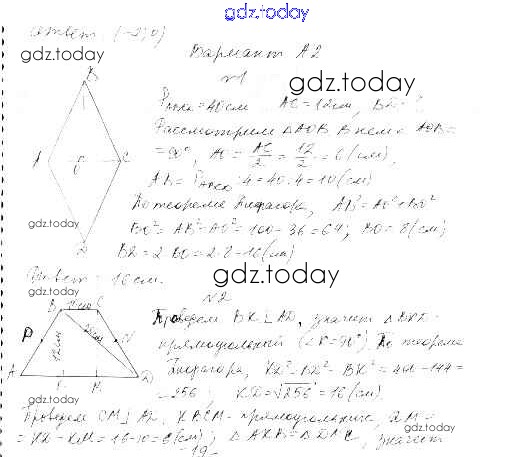 gdz.today
Ответ: (-2;0)
gdz.today
Вариант А2
№1
gdz.today
B
A O C
D
P = 40 см AC = 12 см, BD - ?
Рассмотрим △AOB. В нем ∠AOB =
= 90°, AO = AC/2 = 12/2 = 6 (см),
gdz.today
AB = P : 4 = 40 : 4 = 10 (см)
По теореме Пифагора, AB² = AO² + BO²
BO² = AB² - AO² = 100 - 36 = 64; BO = 8 (см)
gdz.today
BD = 2 BO = 2 · 8 = 16 (см)
Ответ: 16 см.
gdz.today
№2
B 10 см C
12 см 20 см
A K M D
Проведем BK ⊥ AD, значит △BKD -
прямоугольный (∠K = 90°) По теореме
gdz.today
Пифагора, KD² = BD² - BK² = 400 - 144 =
= 256; KD = √256 = 16 (см)
gdz.today
Проведем CM ⊥ AD, KBCM - прямоугольник, DM =
= KD - KM = 16 - 10 = 6 (см); △AKB = △DMC, значит
gdz.today
19